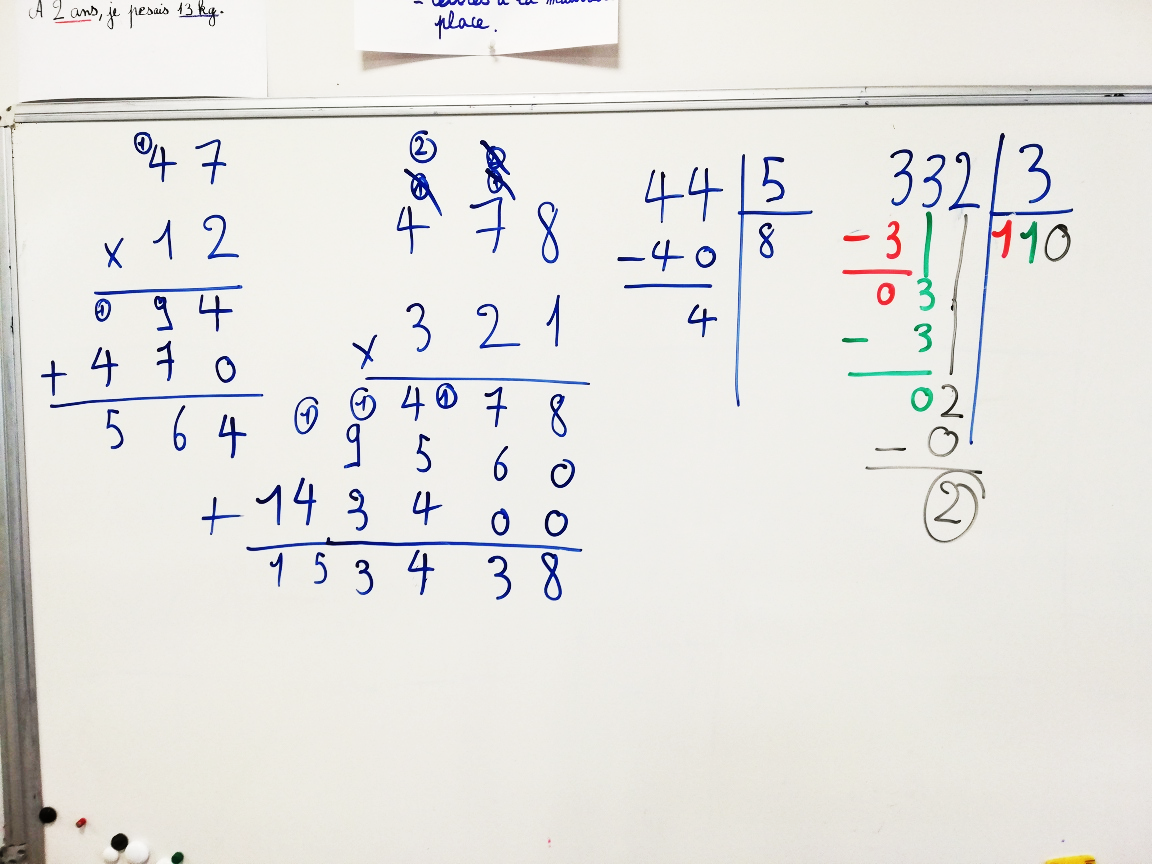 A 2 ans, je pesais 13 kg.
place.
① 4 7
x 1 2
① 9 4
+ 4 7 0
5 6 4
②
4 7 8
x 3 2 1
① ① 4 ① 7 8
9 5 6 0
+ 1 4 3 4 0 0
1 5 3 4 3 8
44 5
- 4 0 8
4
332 3
- 3 110
0 3
- 3
0 2
- 0
②